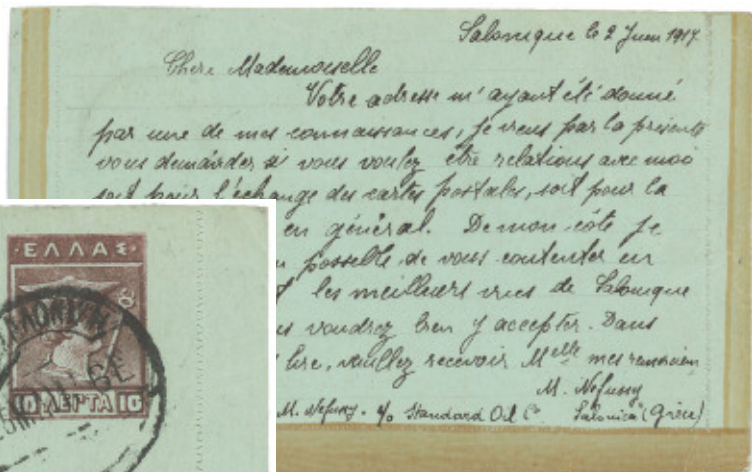 Salonique le 2 Juin 1917
Chere Mademoiselle
Votre adresse m'ayant été donné
par une de mes connaissances, je viens par la présente
vous demander si vous voulez être relations avec moi
soit pour l'échange des cartes postales, soit pour la
en général. De mon côté je
possible de vous contenter en
les meilleurs vues de Salonique
voudrez bien y accepter. Dans
lire, veuillez recevoir Melle mes
M. Nefussy
M. Nefussy. c/o Standard Oil Co. Salonica (Grèce)
ΕΛΛΑΣ
10 ΛΕΠΤΑ 10